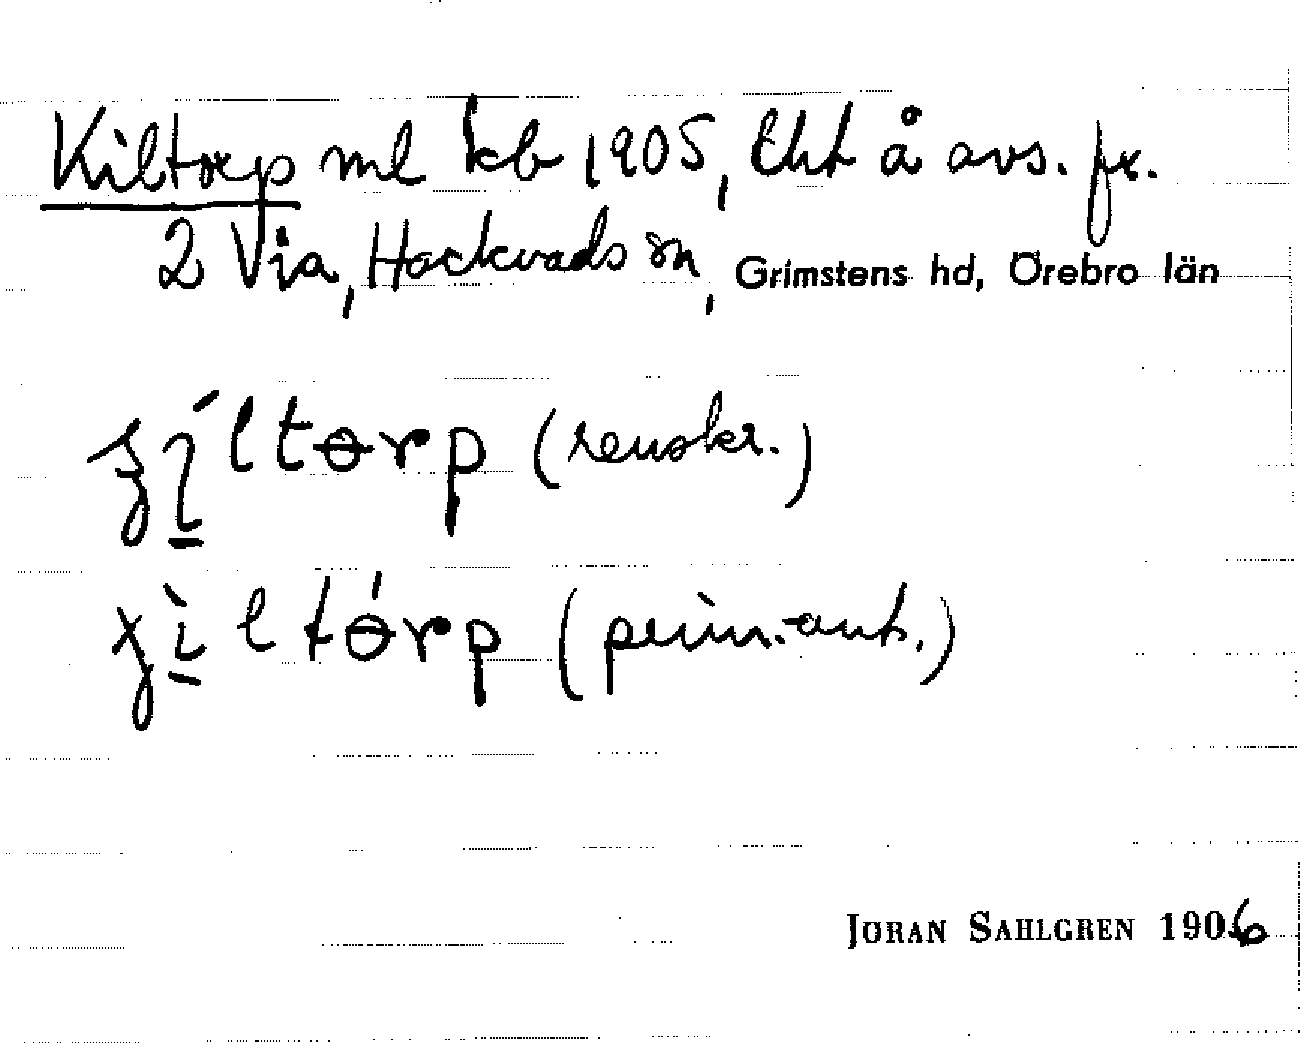 Kiltorp ml kb 1905, tht å avs. fr.
2 Via, Hackvads sn, Grimstens hd, Örebro län
(renskr.)
(prim.-ant.)
JÖRAN SAHLGREN 1906